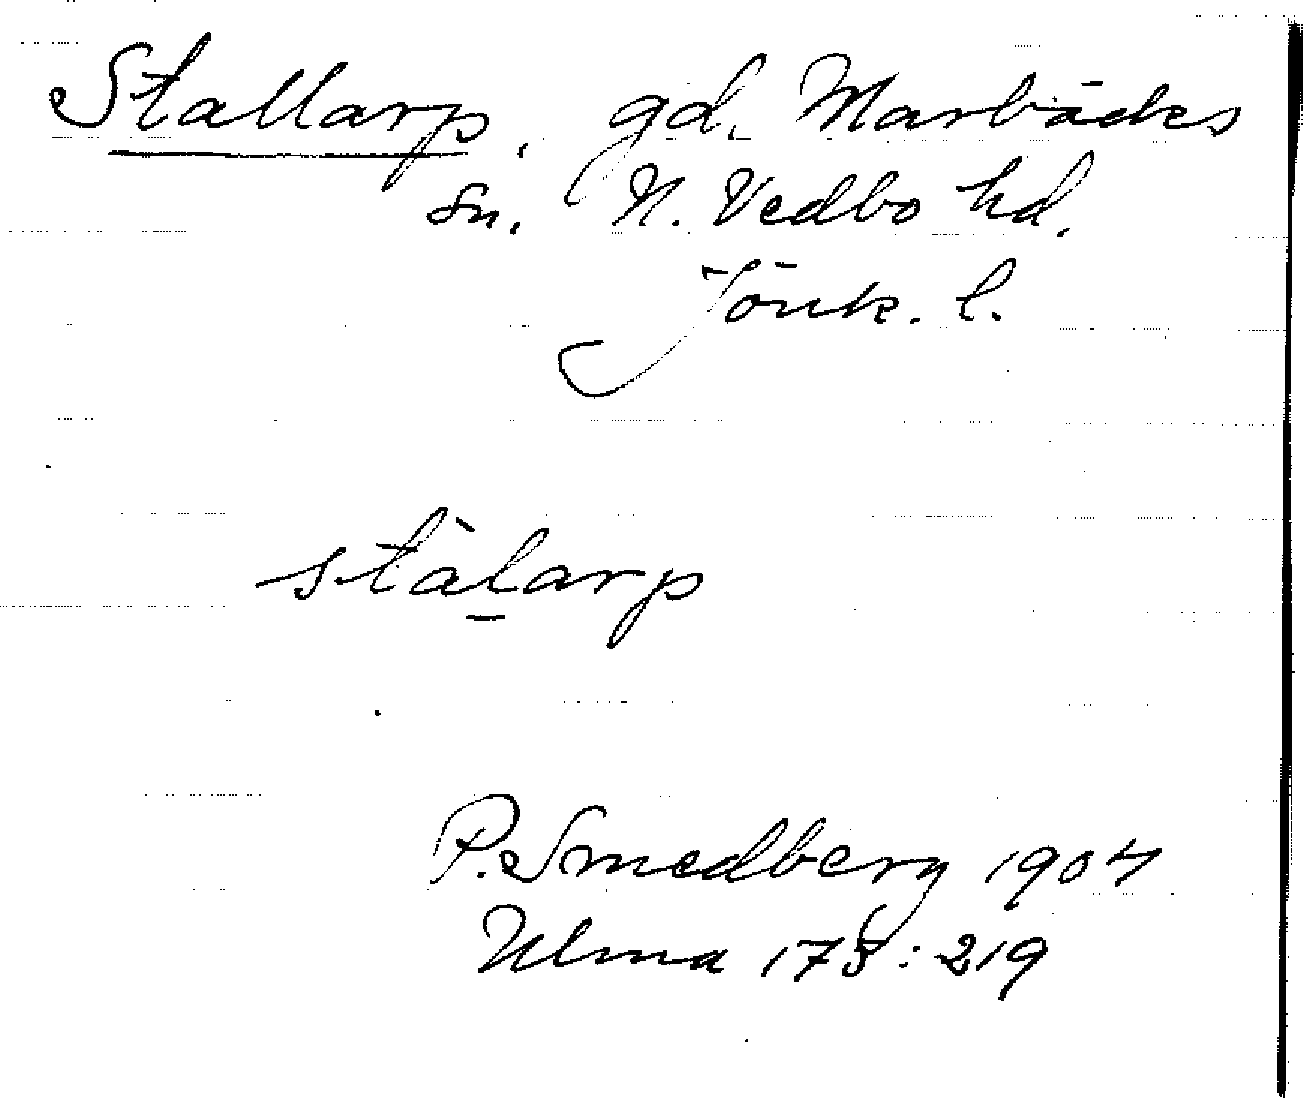 Stallarp, gd. Marbäcks
sn. N. Vedbo hd.
Jönk. l.
stàl̲arp
P. Smedberg 1904
Ulma 173:219